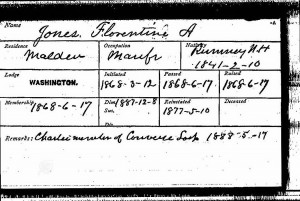 Name
Jones, Florentine A
Residence Occupation Nativity
Malden Manfr Rumney NH
1841-2-10
Lodge Initiated Passed Raised
WASHINGTON. 1868-3-12 1868-6-17 1868-6-17
Membership Dim 1887-12-8 Reinstated Deceased
1868-6-17 Sus. 1877-5-10
Remarks: Charter member of Converse Lodge 1888-5-17